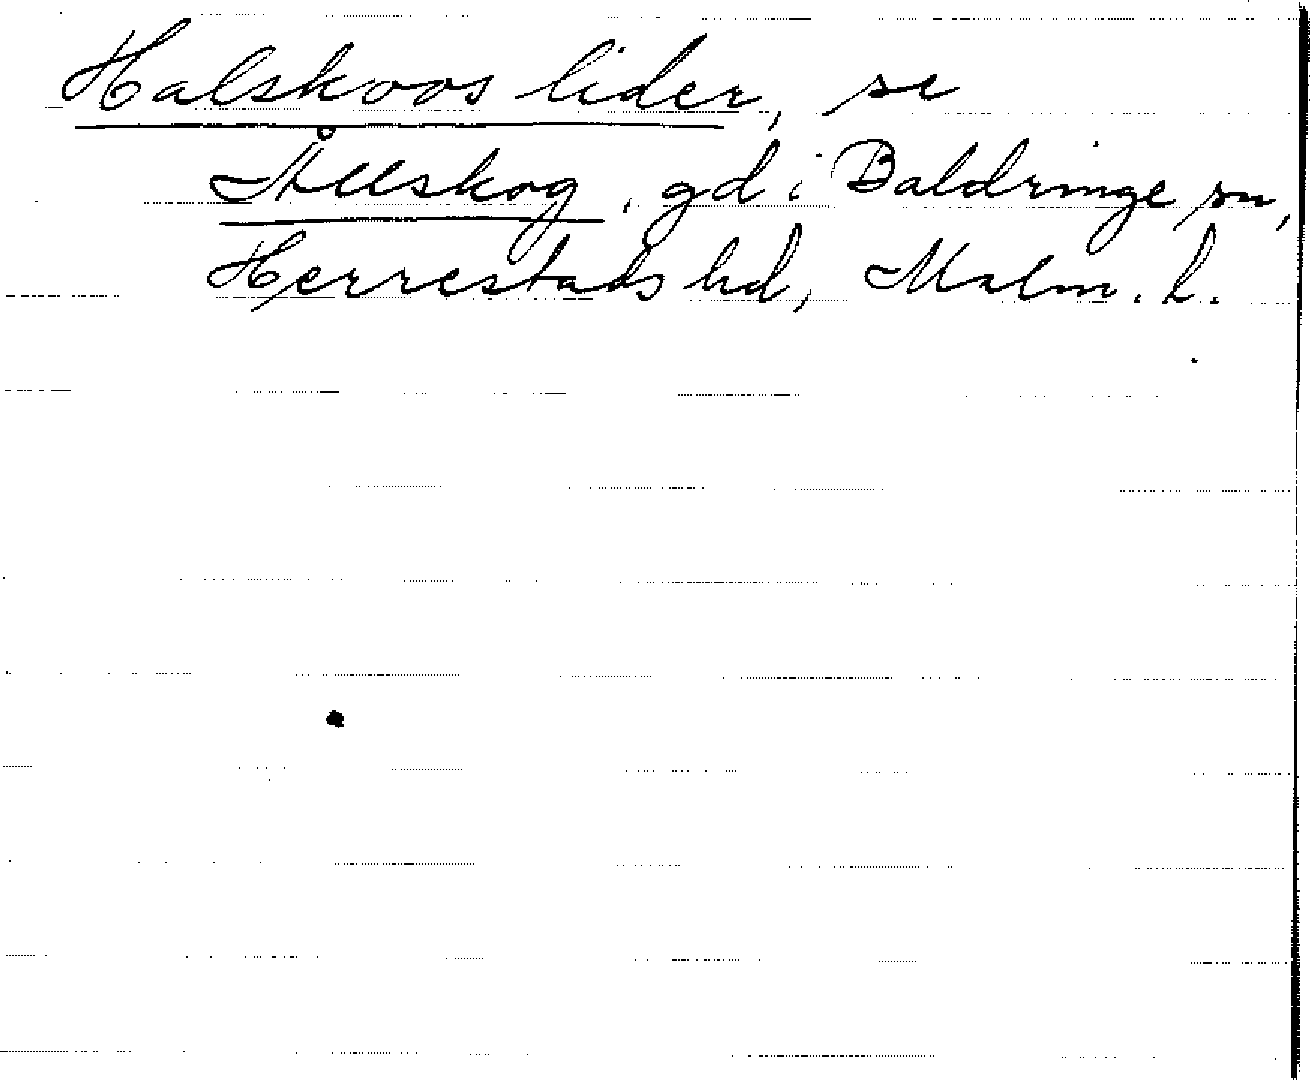 Halskoos lider, se
Ållskog, gd i Baldringe sn,
Herrestads hd, Malm. l.